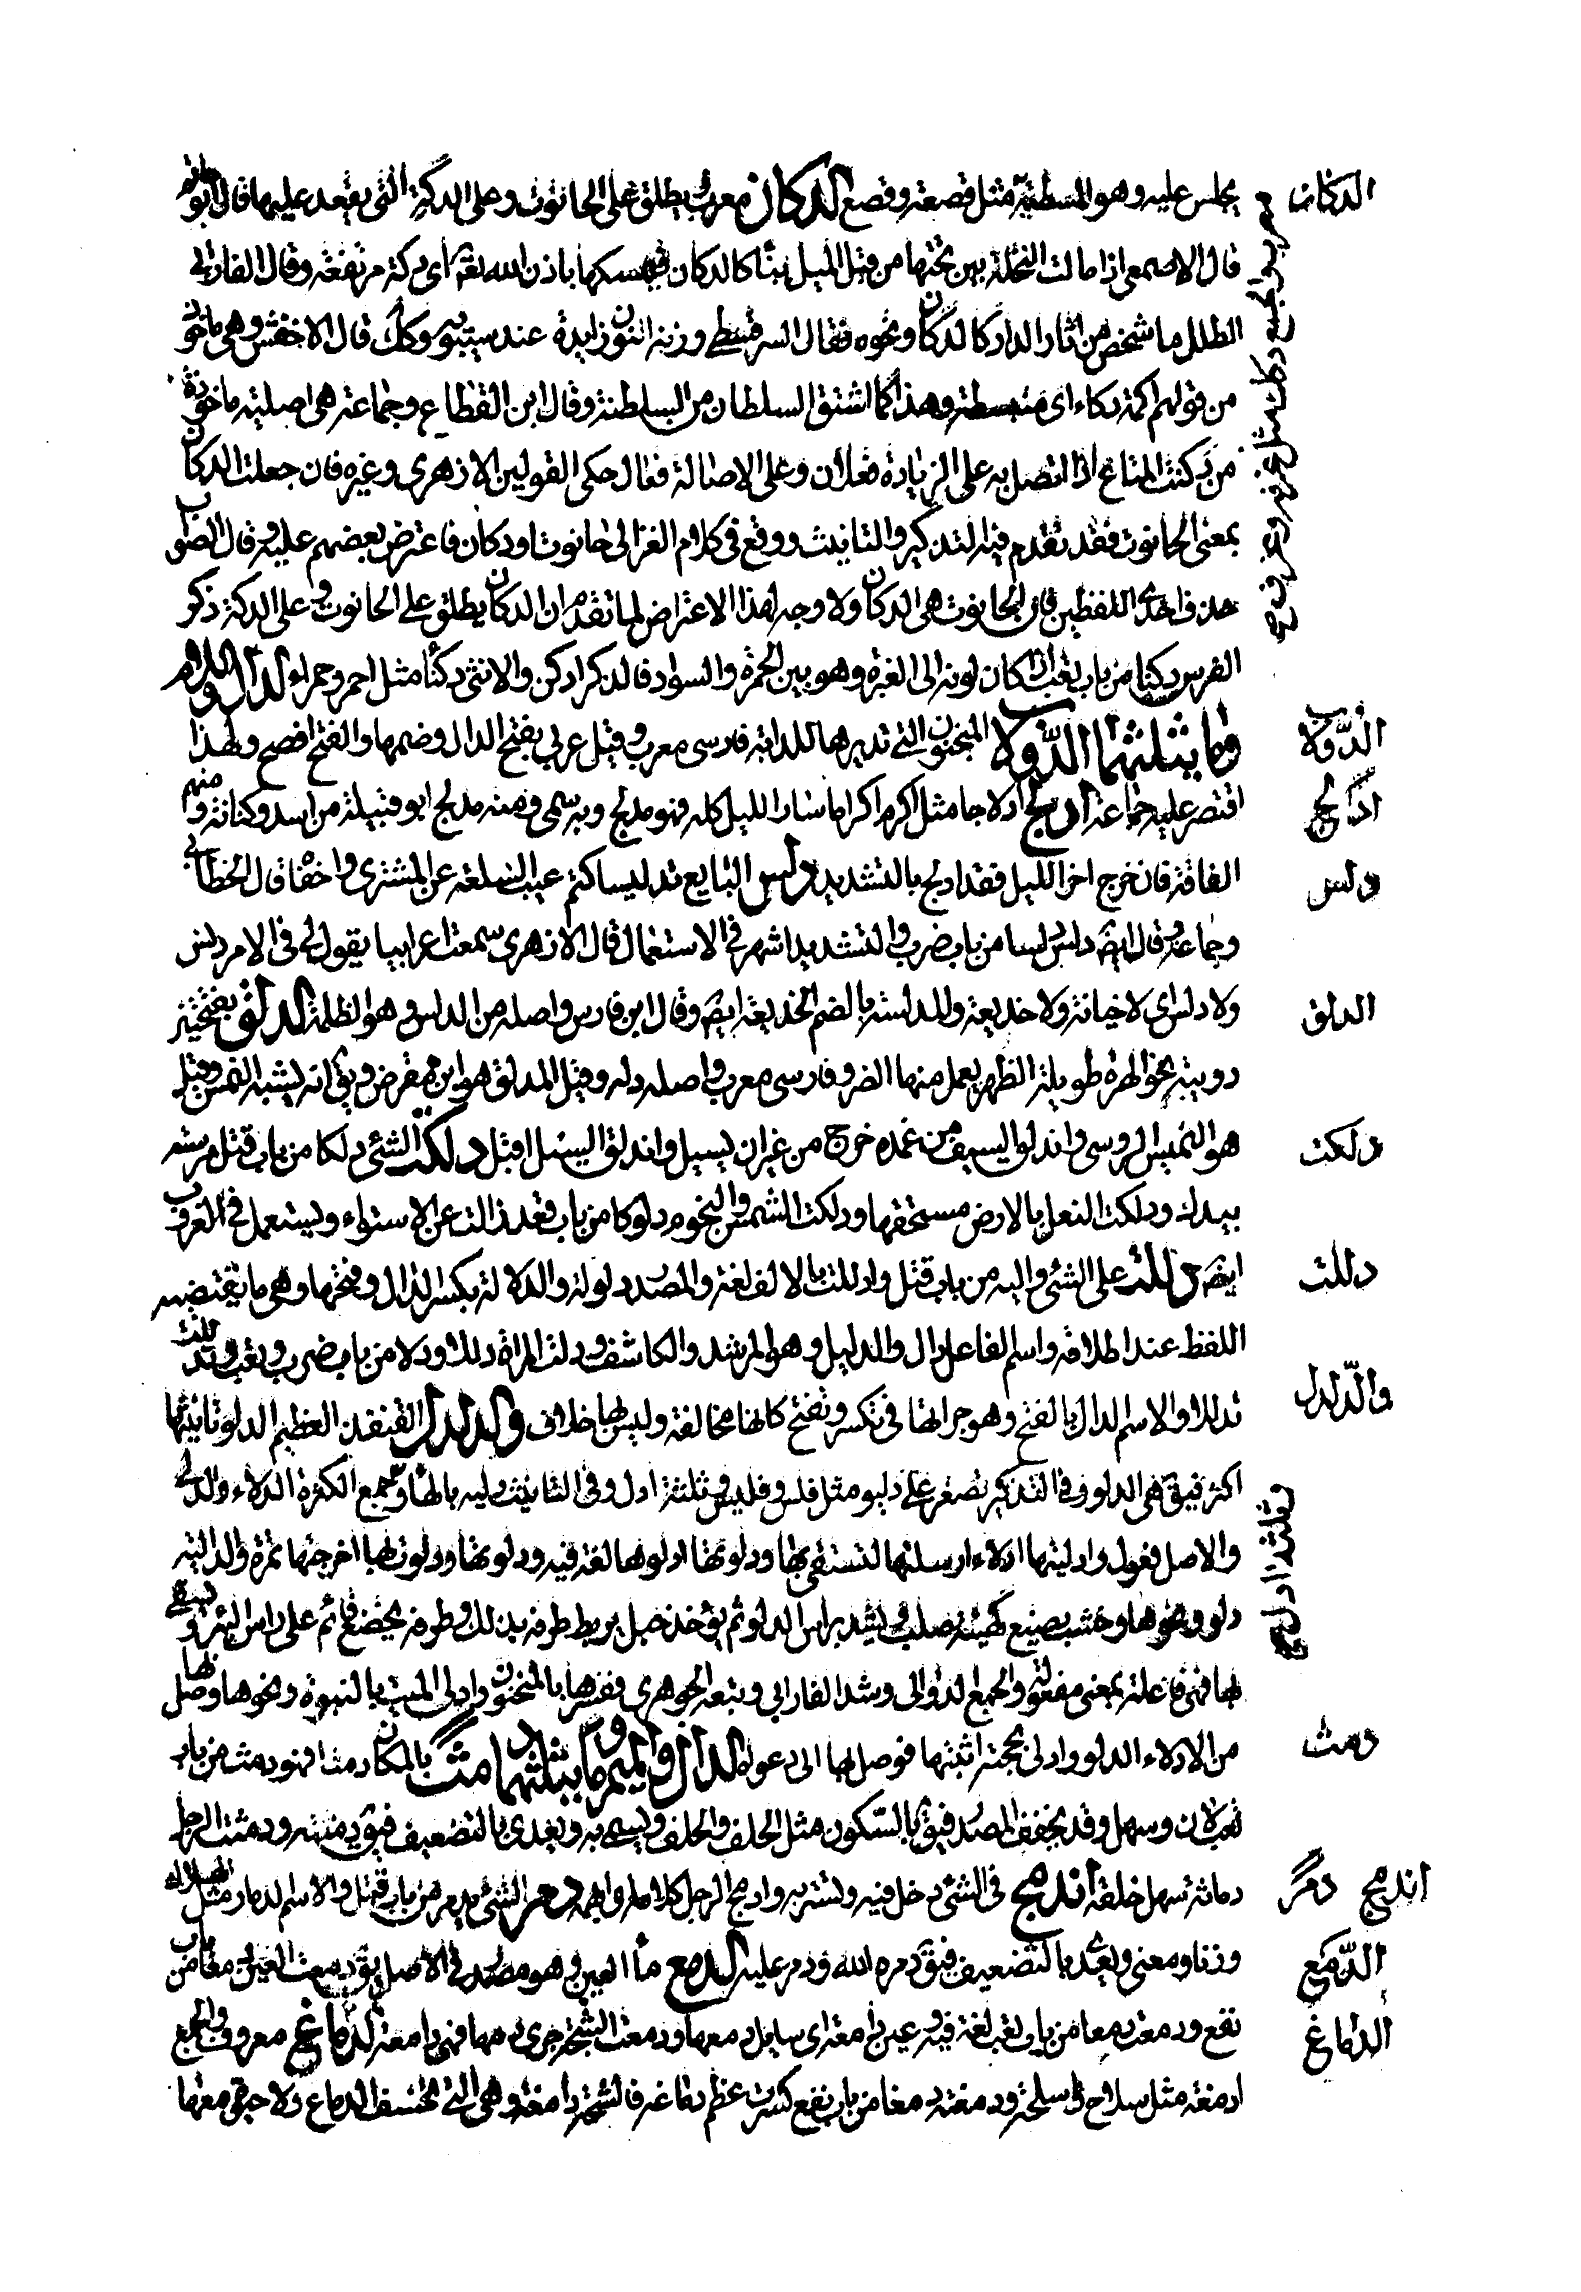 الدكان
يجلس عليه وهو المسطبة مثل قصعة وقصع الدكان معرب يطلق على الحانوت وعلى الدكة التى يقعد عليها قال ابوحاتم
قال الاصمعى اذا مالت النخلة بين تحتها من قبل الميل بناء كالدكان فيمسكها باذن الله تعه اى دكة مرتفعة وقال الفارابى
الطلل ما شخص من اثار الدار كالدكان ونحوه فقال السرقسطى وزنه النون زايدة عند سيبويه وكك قال الاخفش وهى ماخوذ
من قولهم اكمة دكاء اى منبسطة وهذا كما اشتق السلطان من السلطنة وقال ابن القطاع وجماعة هى اصلية ماخوذة
من دكنت المتاع اذا نضدته على الزيادة فعلان وعلى الاصالة فعال حكى القولين الازهرى وغيره فان جعلت الدكان
بمعنى الحانوت فقد تقدم فيه التذكير والتانيث ووقع فى كلام الغزالى حانوت او دكان فاعترض بعضهم عليه وقال الصواب
حذف احدى اللفظين فان الحانوت هى الدكان ولا وجه لهذا الاعتراض لما تقدم ان الدكان يطلق على الحانوت وعلى الدكة دكن
الفرس دكنا من باب تعب اذا كان لونه الى الغبرة وهو بين الحمرة والسواد فالذكر ادكن والانثى دكناء مثل احمر وحمراء الدال واللام
وما يثلثهما الدولاب المنجنون التى تديرها الدابة فارسى معرب وقيل عربى بفتح الدال وضمها والفتح افصح ولهذا
الدولاب
اقتصر عليه جماعة ادلج ادلاجا مثل اكرم اكراما سار الليل كله فهو مدلج وبه سمى ومنه مدلج ابو قبيلة من اسد وكنانة ومنهم
ادلج
القافة فان خرج اخر الليل فقد ادلج بالتشديد دلس البايع تدليسا كتم عيب السلعة عن المشترى واخفاه قال الخطابى
دلس
وجماعة وقال ايضه دلس دلسا من باب ضرب والتشديد اشهر فى الاستعمال قال الازهرى سمعت اعرابيا يقول لى فى الامر دلس
ولا دلس اى لا خيانة ولا خديعة والدلسة بالضم الخديعة ايضه وقال ابن فارس واصله من الدلس وهو الظلمة الدلق بفتحتين
الدلق
دويبة نحو الهرة طويلة الظهر يعمل منها الفرو فارسى معرب واصله دله وقيل المدلق هو ابن مقرض ويق انه يشبه النمس وقيل
هو النمس الرومى واندلق السيف من غمده خرج من غير ان يسل واندلق السيل اقبل دلكت الشئ دلكا من باب قتل مرسته
دلكت
بيدك ودلكت النعل بالارض مسحتها ودلكت الشمس والنجوم دلوكا من باب قعد زالت عن الاستواء ويستعمل فى الغروب
ايضه دللت على الشئ واليه من باب قتل وادللت بالالف لغة والمصدر دلولة والدلالة بكسر الدال وفتحها وهى ما يقتضيه
دللت
اللفظ عند اطلاقه واسم الفاعل دال والدليل وهو المرشد والكاشف ودلت المراة دللا ودلا من باب ضرب وتعب وتدللت
تدللا والاسم الدلال بالفتح وهو جراتها فى تكسر وتغنج كانها مخالفة وليس بها خلاف والدلدل القنفذ العظيم الدلو تانيثها
والدلدل
اكثر فيق هى الدلو وفى التذكير يصغر على دليو مثل فلس وفليس وثلثة ادل وفى التانيث دلية بالهاء وجمع الكثرة الدلاء والدلى
والاصل فعول وادليتها ادلاء ارسلتها لتستقى بها ودلوتها ادلوها لغة فيه ودلوتها ودلوت بها اخرجتها مملوة والدالية
دلو ونحوها وخشب يصنع كهيئة صليب ويشد براس الدلو ثم يؤخذ حبل يربط طرفه بذلك وطرفه بجذع قائم على راس البئر ويسقى
بها فهى فاعلة بمعنى مفعولة والجمع الدوالى وشذ الفارابى وتبعه الجوهرى ففسرها بالمنجنون وادلى الميت بالبنوة ونحوها وصل بها
من الادلاء الدلو وادلى بحجته اثبتها فوصل بها الى دعواه الدال والميم وما يثلثهما دمث المكان دمثا فهو دمث من باب
دمث
تعب لان وسهل وقد يخفف المصدر فيق بالسكون مثل الحلف والحلف ويسمى به ويعدى بالتضعيف فيق دمثته ودمث الرجل
دماثة سهل خلقه اندمج فى الشئ دخل فيه وتستر به وادمج الرجل كلامه ابهمه دمر الشئ يدمر من باب قتل والاسم الدمار مثل الهلاك
اندمج دمر
وزنا ومعنى ويعدى بالتضعيف فيق دمره الله ودمر عليه الدمع ماء العين وهو مصدر فى الاصل يق دمعت العين دمعا من باب
الدمع
نفع ودمعت دمعا من باب تعب لغة فيه وعين دامعة اى سايل دمعها ودمعت الشجة جرى دمها فهى دامعة الدماغ معروف والجمع
الدماغ
ادمغة مثل سلاح واسلحة ودمغته دمغا من باب نفع كسرت عظم دماغه فالشجة دامغة وهى التى تخسف الدماغ ولا حيوة معها